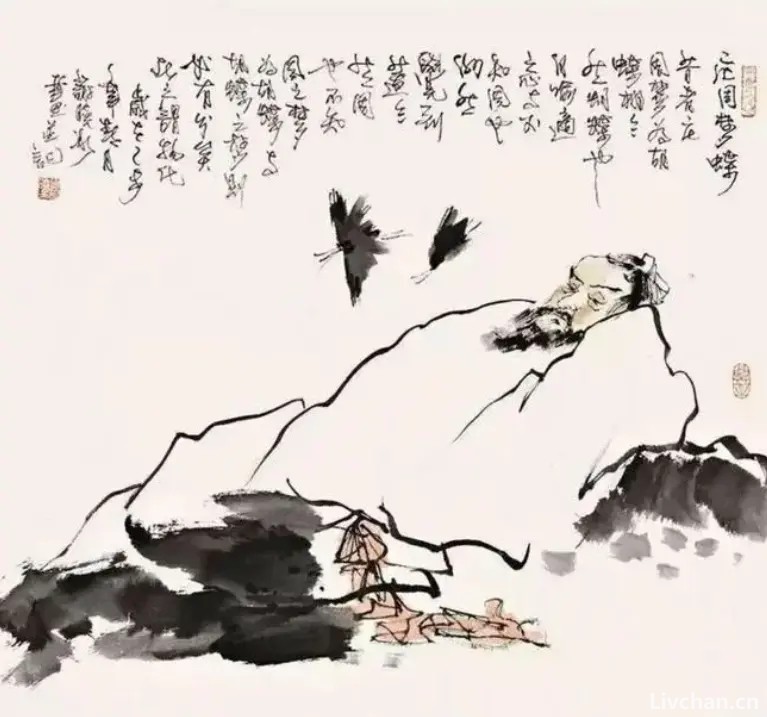 庄周梦蝶
昔者庄
周梦为胡
蝶栩々
然胡蝶也
自喻适
志与不
知周也
俄然
觉则
蘧々
然周
也不知
周之梦
为胡蝶与
胡蝶之梦则
必有分矣
此之谓物化
岁在
Livchan.cn